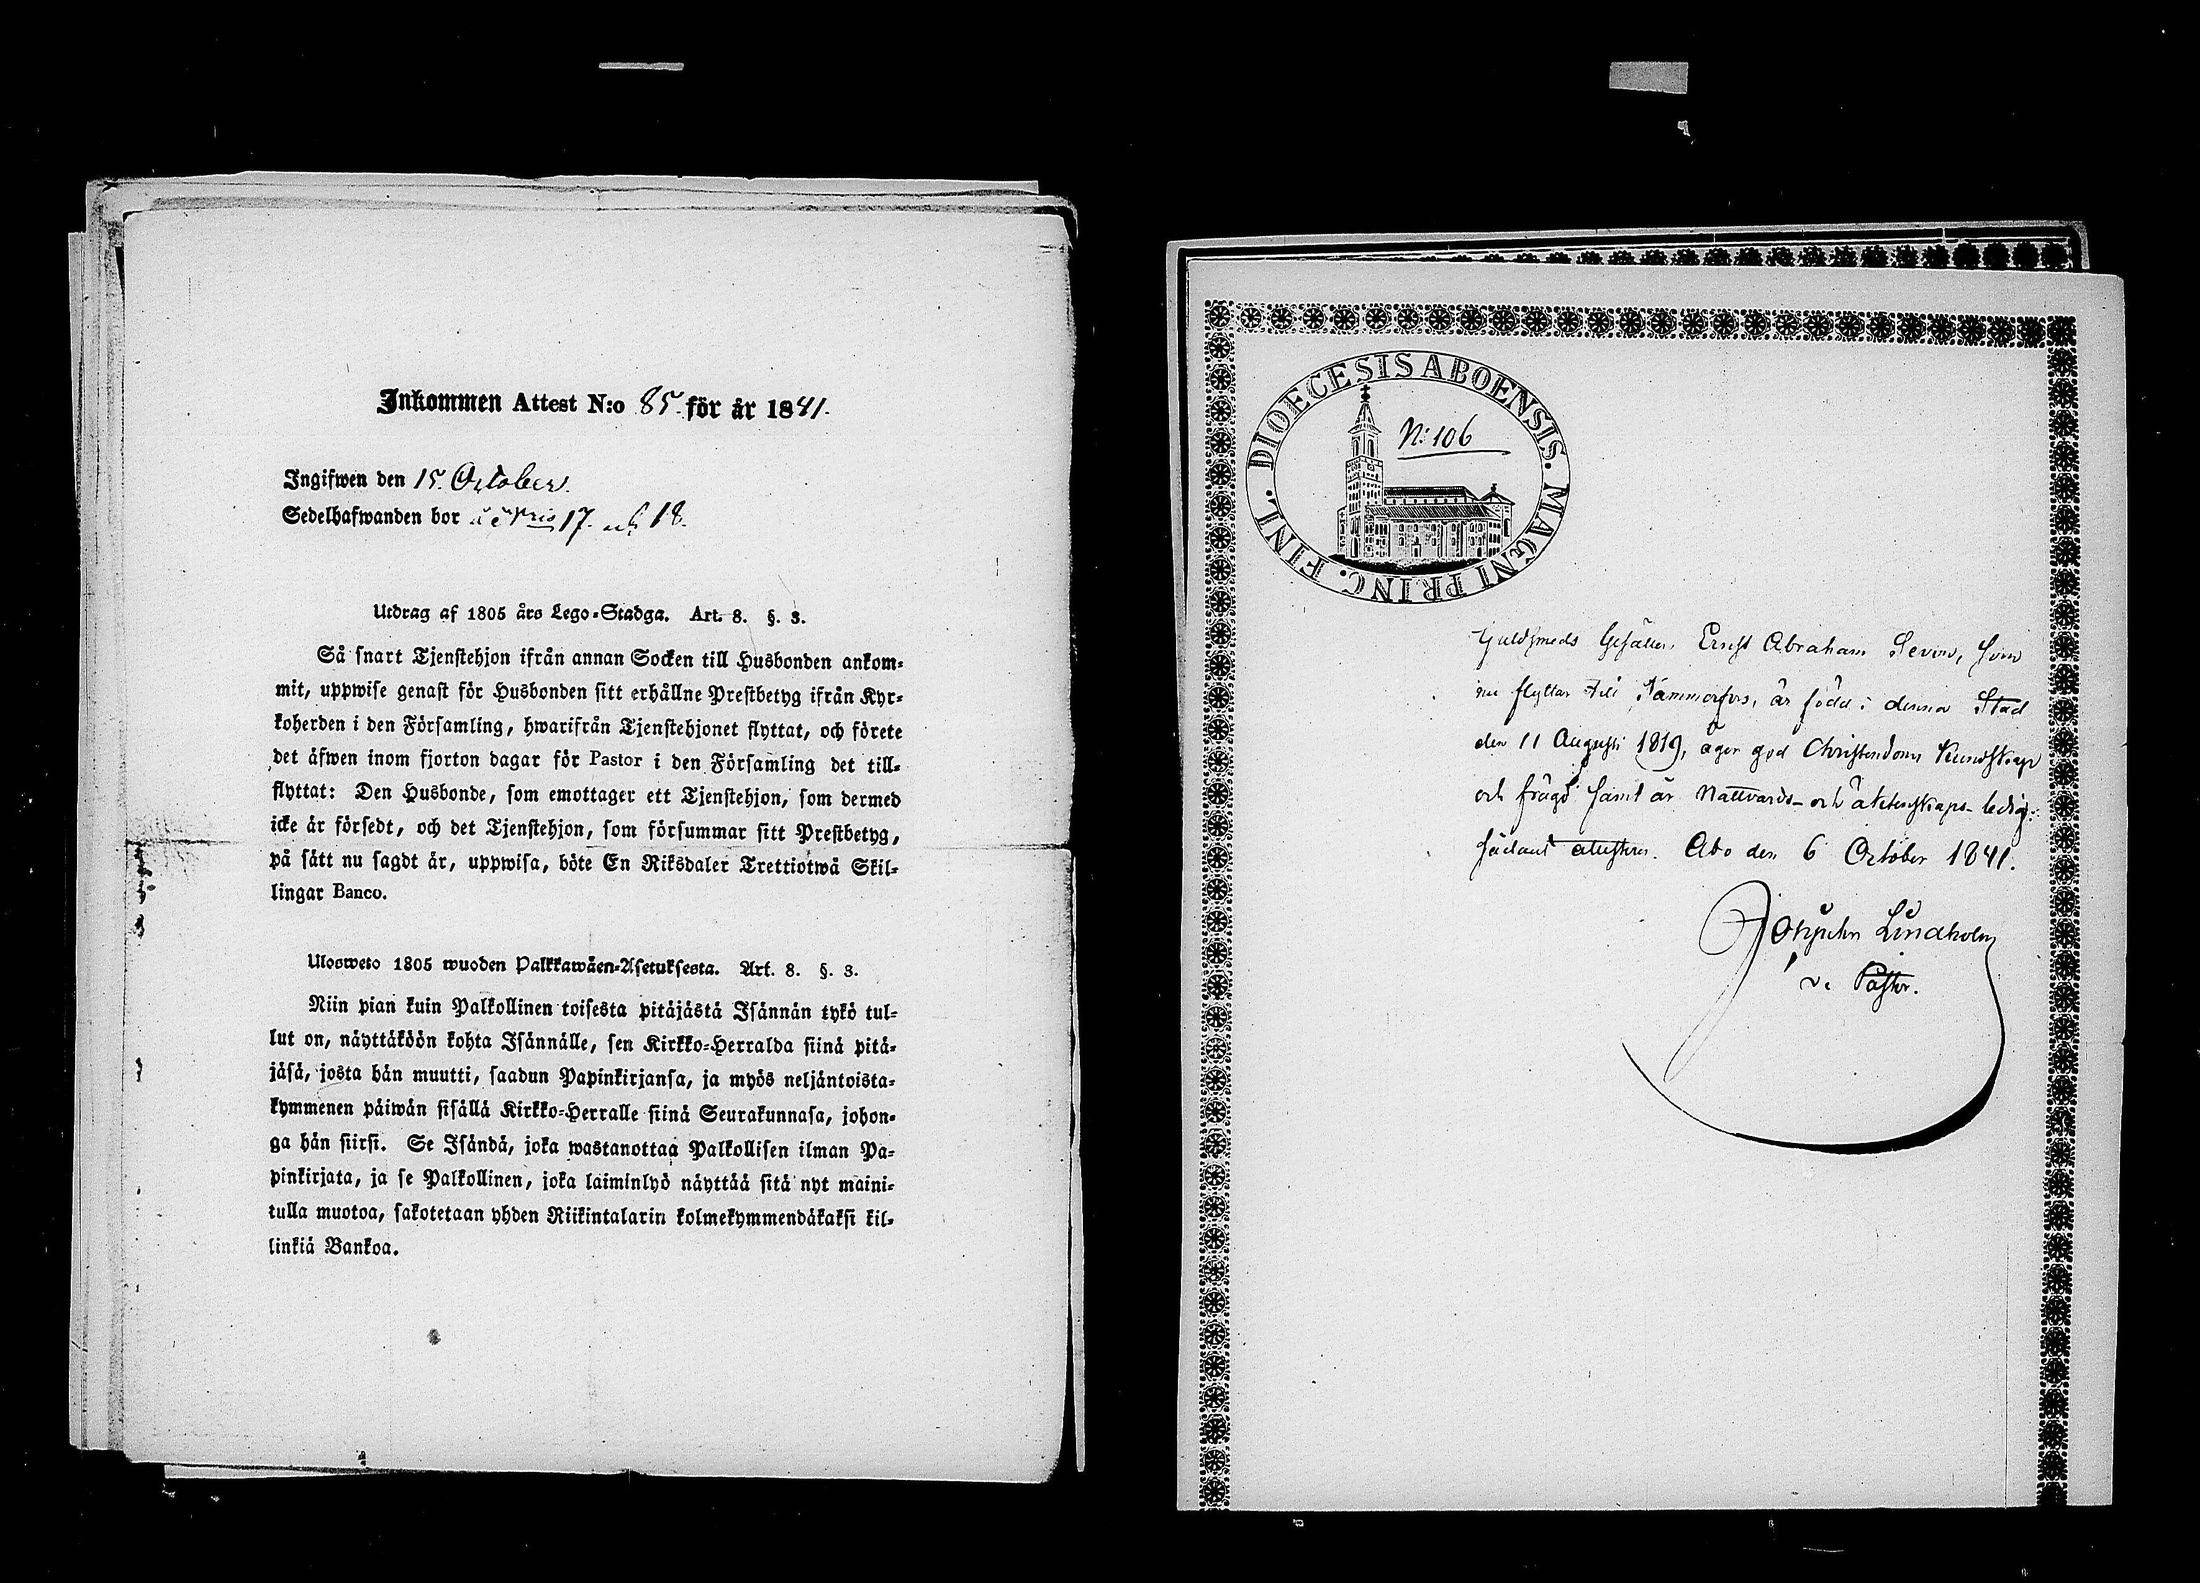 Inkommen Attest N:o 85. för år 1841.
Ingifwen den 15. October.
Sedelhafwanden bor å N:ris 17. och 18.
Utdrag af 1805 års Lego-Stadga. Art. 8. §. 3.
Så snart Tjenstehjon ifrån annan Socken till Husbonden ankom-
mit, uppwise genast för Husbonden sitt erhållne Prestbetyg ifrån Kyr-
koherden i den Församling, hwarifrån Tjenstehjonet flyttat, och förete
det äfwen inom fjorton dagar för Pastor i den Församling det till-
flyttat: Den Husbonde, som emottager ett Tjenstehjon, som dermed
icke är försedt, och det Tjenstehjon, som försummar sitt Prestbetyg,
på sätt nu sagdt är, uppwisa, böte En Riksdaler Trettiotwå Skil-
lingar Banco.
Ulosweto 1805 wuoden Palkkawäen-Asetuksesta. Art. 8. §. 3.
Niin pian kuin Palkollinen toisesta pitäjästä Isännän tykö tul-
lut on, näyttäköön kohta Isännälle, sen Kirkko-Herralda siinä pitä-
jäsä, josta hän muutti, saadun Papinkirjansa, ja myös neljäntoista-
kymmenen päiwän sisällä Kirkko-Herralle siinä Seurakunnasa, johon-
ga hän siirsi. Se Isändä, joka wastanottaa Palkollisen ilman Pa-
pinkirjata, ja se Palkollinen, joka laiminlyö näyttää sitä nyt maini-
tulla muotoa, sakotetaan yhden Riikintalarin kolmekymmendäkaksi kil-
linkiä Bankoa.
DIOECESIS ABOENSIS. MAGNI PRINC. FINL.
N:o 106
Guldsmeds Gesällen Ernst Abraham Sevon, som
nu flyttar till Tammerfors, är född i denna Stad
den 11 Augusti 1819, äger god Christendoms Kundskap
och frägd samt är Nattvards- och äktenskaps- ledig:
sådant attesteras. Åbo den 6 October 1841.
Lindholm
v. Pastor.